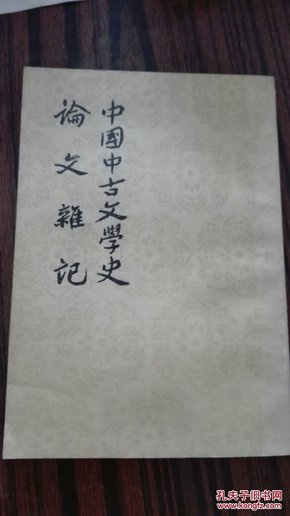 中國中古文學史
論文雜記
孔夫子旧书网